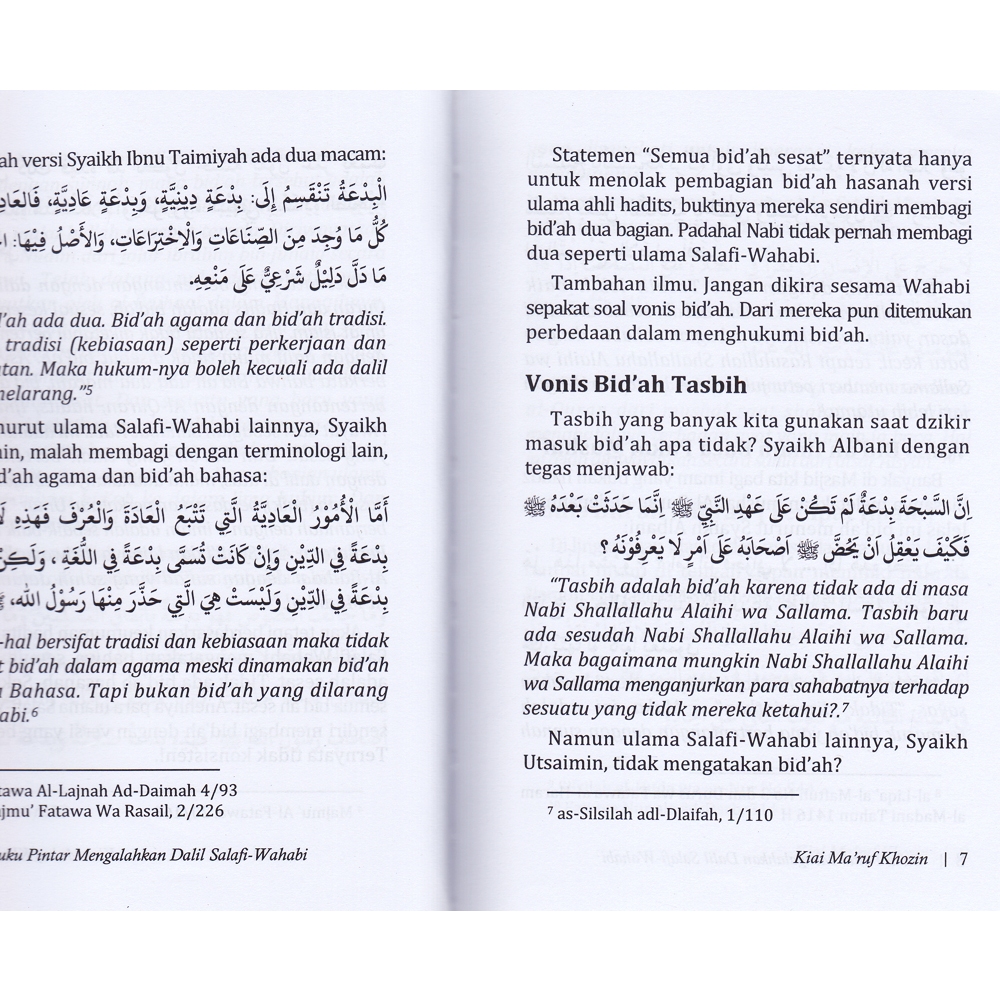 ah versi Syaikh Ibnu Taimiyah ada dua macam:
الْبِدْعَةُ تَنْقَسِمُ إِلَى: بِدْعَةٍ دِيْنِيَّةٍ، وَبِدْعَةٍ عَادِيَّةٍ، فَالعَادِ
كُلُّ مَا وُجِدَ مِنَ الصِّنَاعَاتِ وَالْاِخْتِرَاعَاتِ، وَالْأَصْلُ فِيْهَا:
مَا دَلَّ دَلِيْلٌ شَرْعِيٌّ عَلَى مَنْعِهِ.
d'ah ada dua. Bid'ah agama dan bid'ah tradisi.
tradisi (kebiasaan) seperti perkerjaan dan
atan. Maka hukum-nya boleh kecuali ada dalil
melarang."5
nurut ulama Salafi-Wahabi lainnya, Syaikh
nin, malah membagi dengan terminologi lain,
d'ah agama dan bid'ah bahasa:
أَمَّا الْأُمُوْرُ الْعَادِيَّةُ الَّتِي تَتْبَعُ الْعَادَةَ وَالْعُرْفَ فَهَذِهِ لَا
بِدْعَةً فِي الدِّيْنِ وَإِنْ كَانَتْ تُسَمَى بِدْعَةً فِي اللُّغَةِ ، وَلَكِنْ
بِدْعَةً فِي الدِّيْنِ وَلَيْسَتْ هِيَ الَّتِي حَذَّرَ مِنْهَا رَسُوْلُ الله،
-hal bersifat tradisi dan kebiasaan maka tidak
t bid'ah dalam agama meski dinamakan bid'ah
a Bahasa. Tapi bukan bid'ah yang dilarang
abi.6
tawa Al-Lajnah Ad-Daimah 4/93
jmu' Fatawa Wa Rasail, 2/226
uku Pintar Mengalahkan Dalil Salafi-Wahabi
Statemen “Semua bid'ah sesat” ternyata hanya
untuk menolak pembagian bid'ah hasanah versi
ulama ahli hadits, buktinya mereka sendiri membagi
bid'ah dua bagian. Padahal Nabi tidak pernah membagi
dua seperti ulama Salafi-Wahabi.
Tambahan ilmu. Jangan dikira sesama Wahabi
sepakat soal vonis bid'ah. Dari mereka pun ditemukan
perbedaan dalam menghukumi bid'ah.
Vonis Bid'ah Tasbih
Tasbih yang banyak kita gunakan saat dzikir
masuk bid'ah apa tidak? Syaikh Albani dengan
tegas menjawab:
اِنَّ السَّبْحَةَ بِدْعَةٌ لَمْ تَكُنْ عَلَى عَهْدِ النَّبِيِّ ﷺ اِنَّمَا حَدَثَتْ بَعْدَهُ ﷺ
فَكَيْفَ يَعْقِلُ اَنْ يَحُضَّ ﷺ اَصْحَابَهُ عَلَى اَمْرٍ لَا يَعْرِفُوْنَهُ ؟
“Tasbih adalah bid'ah karena tidak ada di masa
Nabi Shallallahu Alaihi wa Sallama. Tasbih baru
ada sesudah Nabi Shallallahu Alaihi wa Sallama.
Maka bagaimana mungkin Nabi Shallallahu Alaihi
wa Sallama menganjurkan para sahabatnya terhadap
sesuatu yang tidak mereka ketahui?.7
Namun ulama Salafi-Wahabi lainnya, Syaikh
Utsaimin, tidak mengatakan bid'ah?
7 as-Silsilah adl-Dlaifah, 1/110
Kiai Ma'ruf Khozin | 7